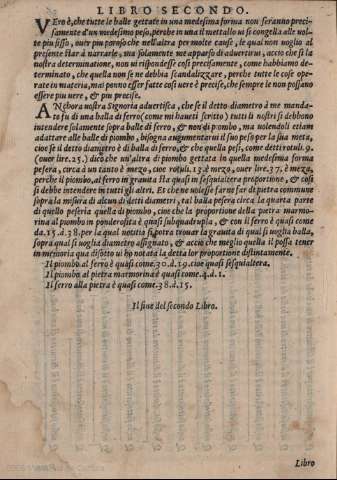 LIBRO SECONDO.
VEro è, che tutte le balle gettate in una medesima forma non seranno preci-
samente d'un medesimo peso, perche in una il mettallo ui se congella alle uol-
te piu fisso, ouer piu porofo che nell'altra per molte cause, le qual non uoglio al
presente star à narrarle, ma solamente me apparso di aduertirui, accio che se la
nostra determinatione, non ui rispondesse cosi precisamente, come habbiamo de-
terminato, che quella non se ne debbia scandalizzare, perche tutte le cose ope-
rate in materia, mai ponno esser fatte cosi uere & precise, che sempre le non possano
essere piu uere, & piu precise.
ANchora uostra Signoria aduertisca, che se il detto diametro à me manda-
to fu di una balla di ferro (come mi haueti scritto) tutti li nostri se debbono
intendere solamente sopra balle di ferro, & non di pombo, ma uolendoli etiam
adattare alle balle di piombo, bisogna augumentarui il suo peso per la sua nota,
cioe se il detto diametro è di balla di ferro, & che quella pesi, come detti rotuli 9.
(ouer lire. 25.) dico che un'altra di piombo gettata in quella medesima forma
pesera, circa à un tanto è mezo, cioe rotuli. 13. è mezo, ouer lire. 37. è meza,
perche il piombo, al ferro in grauita sta quasi in sesquialtera proportione, & cosi
si debbe intendere in tutti gli altri. Et che ne uolesse farne far di pietra commune
sopra la misura di alcun di detti diametri, tal balla pesera circa la quarta parte
di quello peseria quella di piombo, cioe che la proportione della pietra marmo-
rina al piombo in ponderosita è quasi subquadrupla, & con il ferro è quasi come
da. 15. à. 38. per la qual notitia si potra trouar la grauita di qual si uoglia balla,
sopra qual si uoglia diametro assignato, & accio che meglio quella il possa tener
in memoria qua disotto ui ho notata la detta lor proportione distintamente.
Il piombo al ferro è quasi come. 30. à. 19. cioe quasi sesquialtera.
Il piombo al pietra marmorina è quasi come. 4. à. 1.
Il ferro alla pietra è quasi come. 38. à. 15.
Il fine del secondo Libro.
Libro